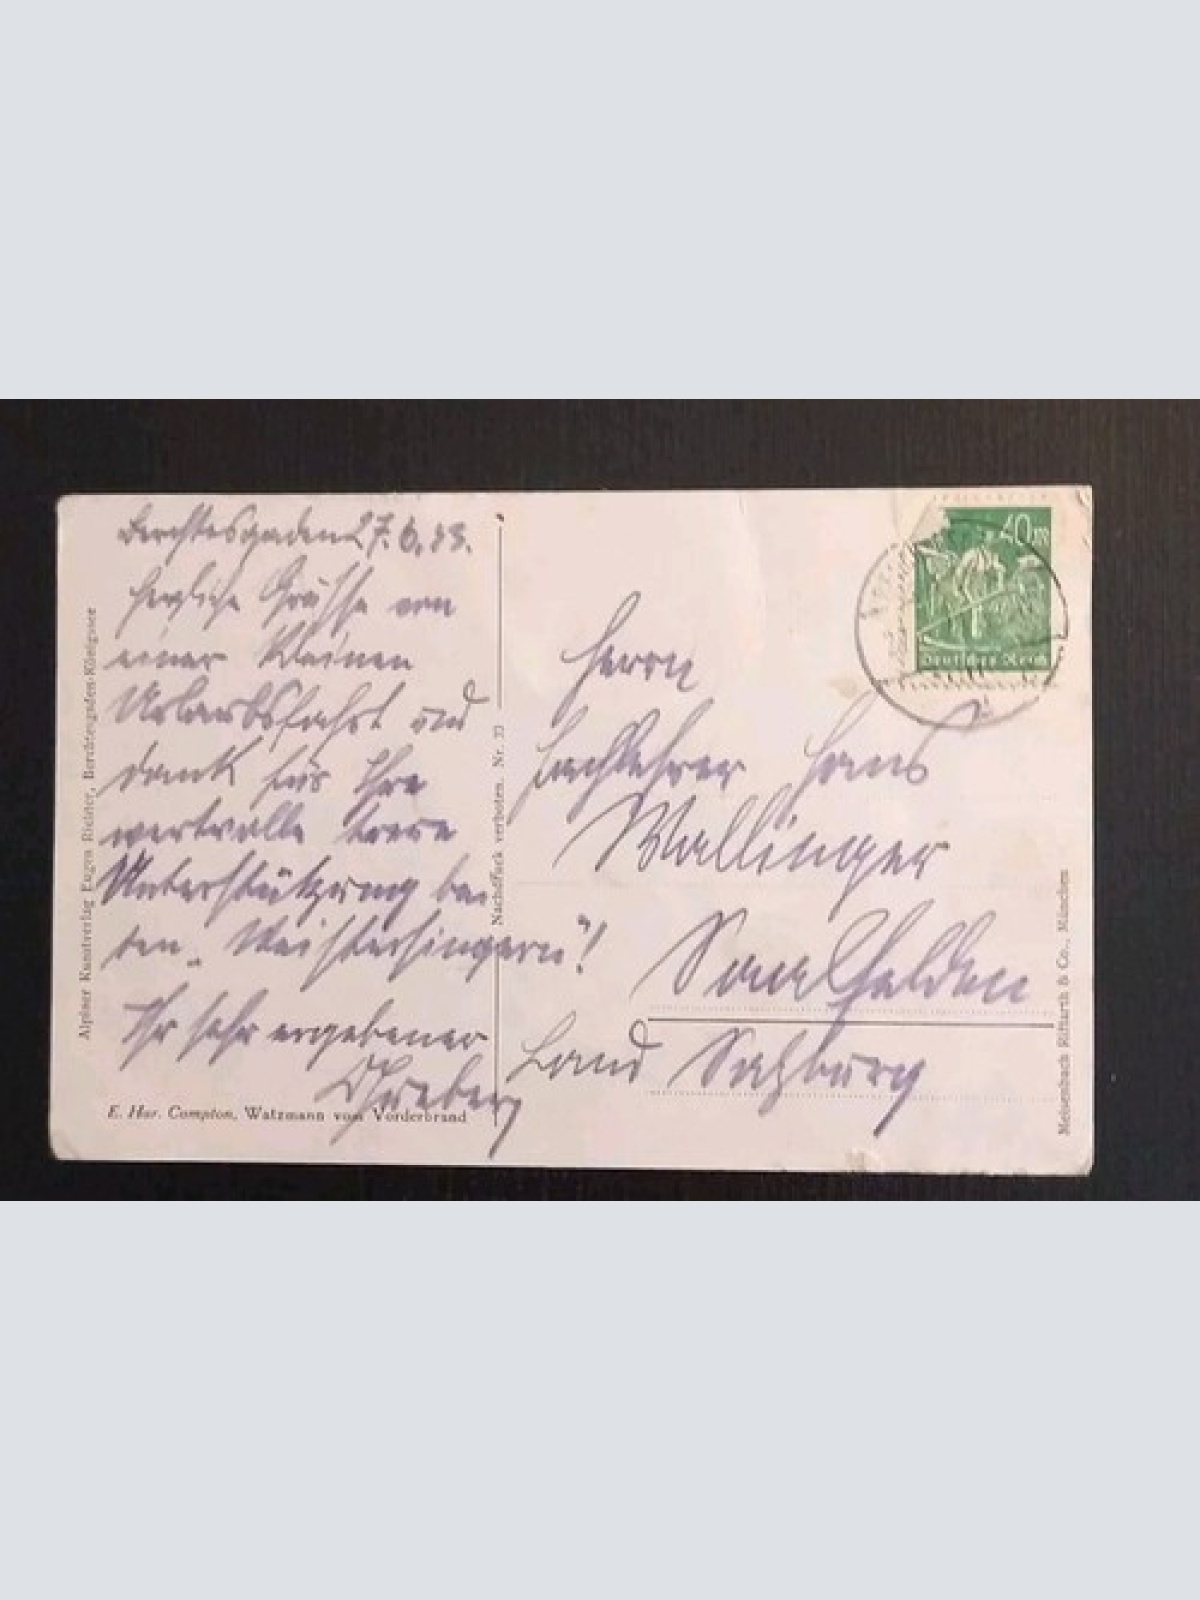 Berchtesgaden 27.6.23.
Herzliche Grüsse von
einer kleinen
Urlaubsfahrt und
Dank für Ihre
wertvolle treue
Unterstützung bei
den „Meistersingern"!
Ihr sehr ergebener
Herrn
Fachlehrer Hans
Wallinger
Saalfelden
Land Salzburg
40 M
Deutsches Reich
Alpiner Kunstverlag Eugen Richter, Berchtesgaden-Königssee
Nachdruck verboten. Nr. 33
E. Har. Compton, Watzmann vom Vorderbrand
Meisenbach Riffarth & Co., München